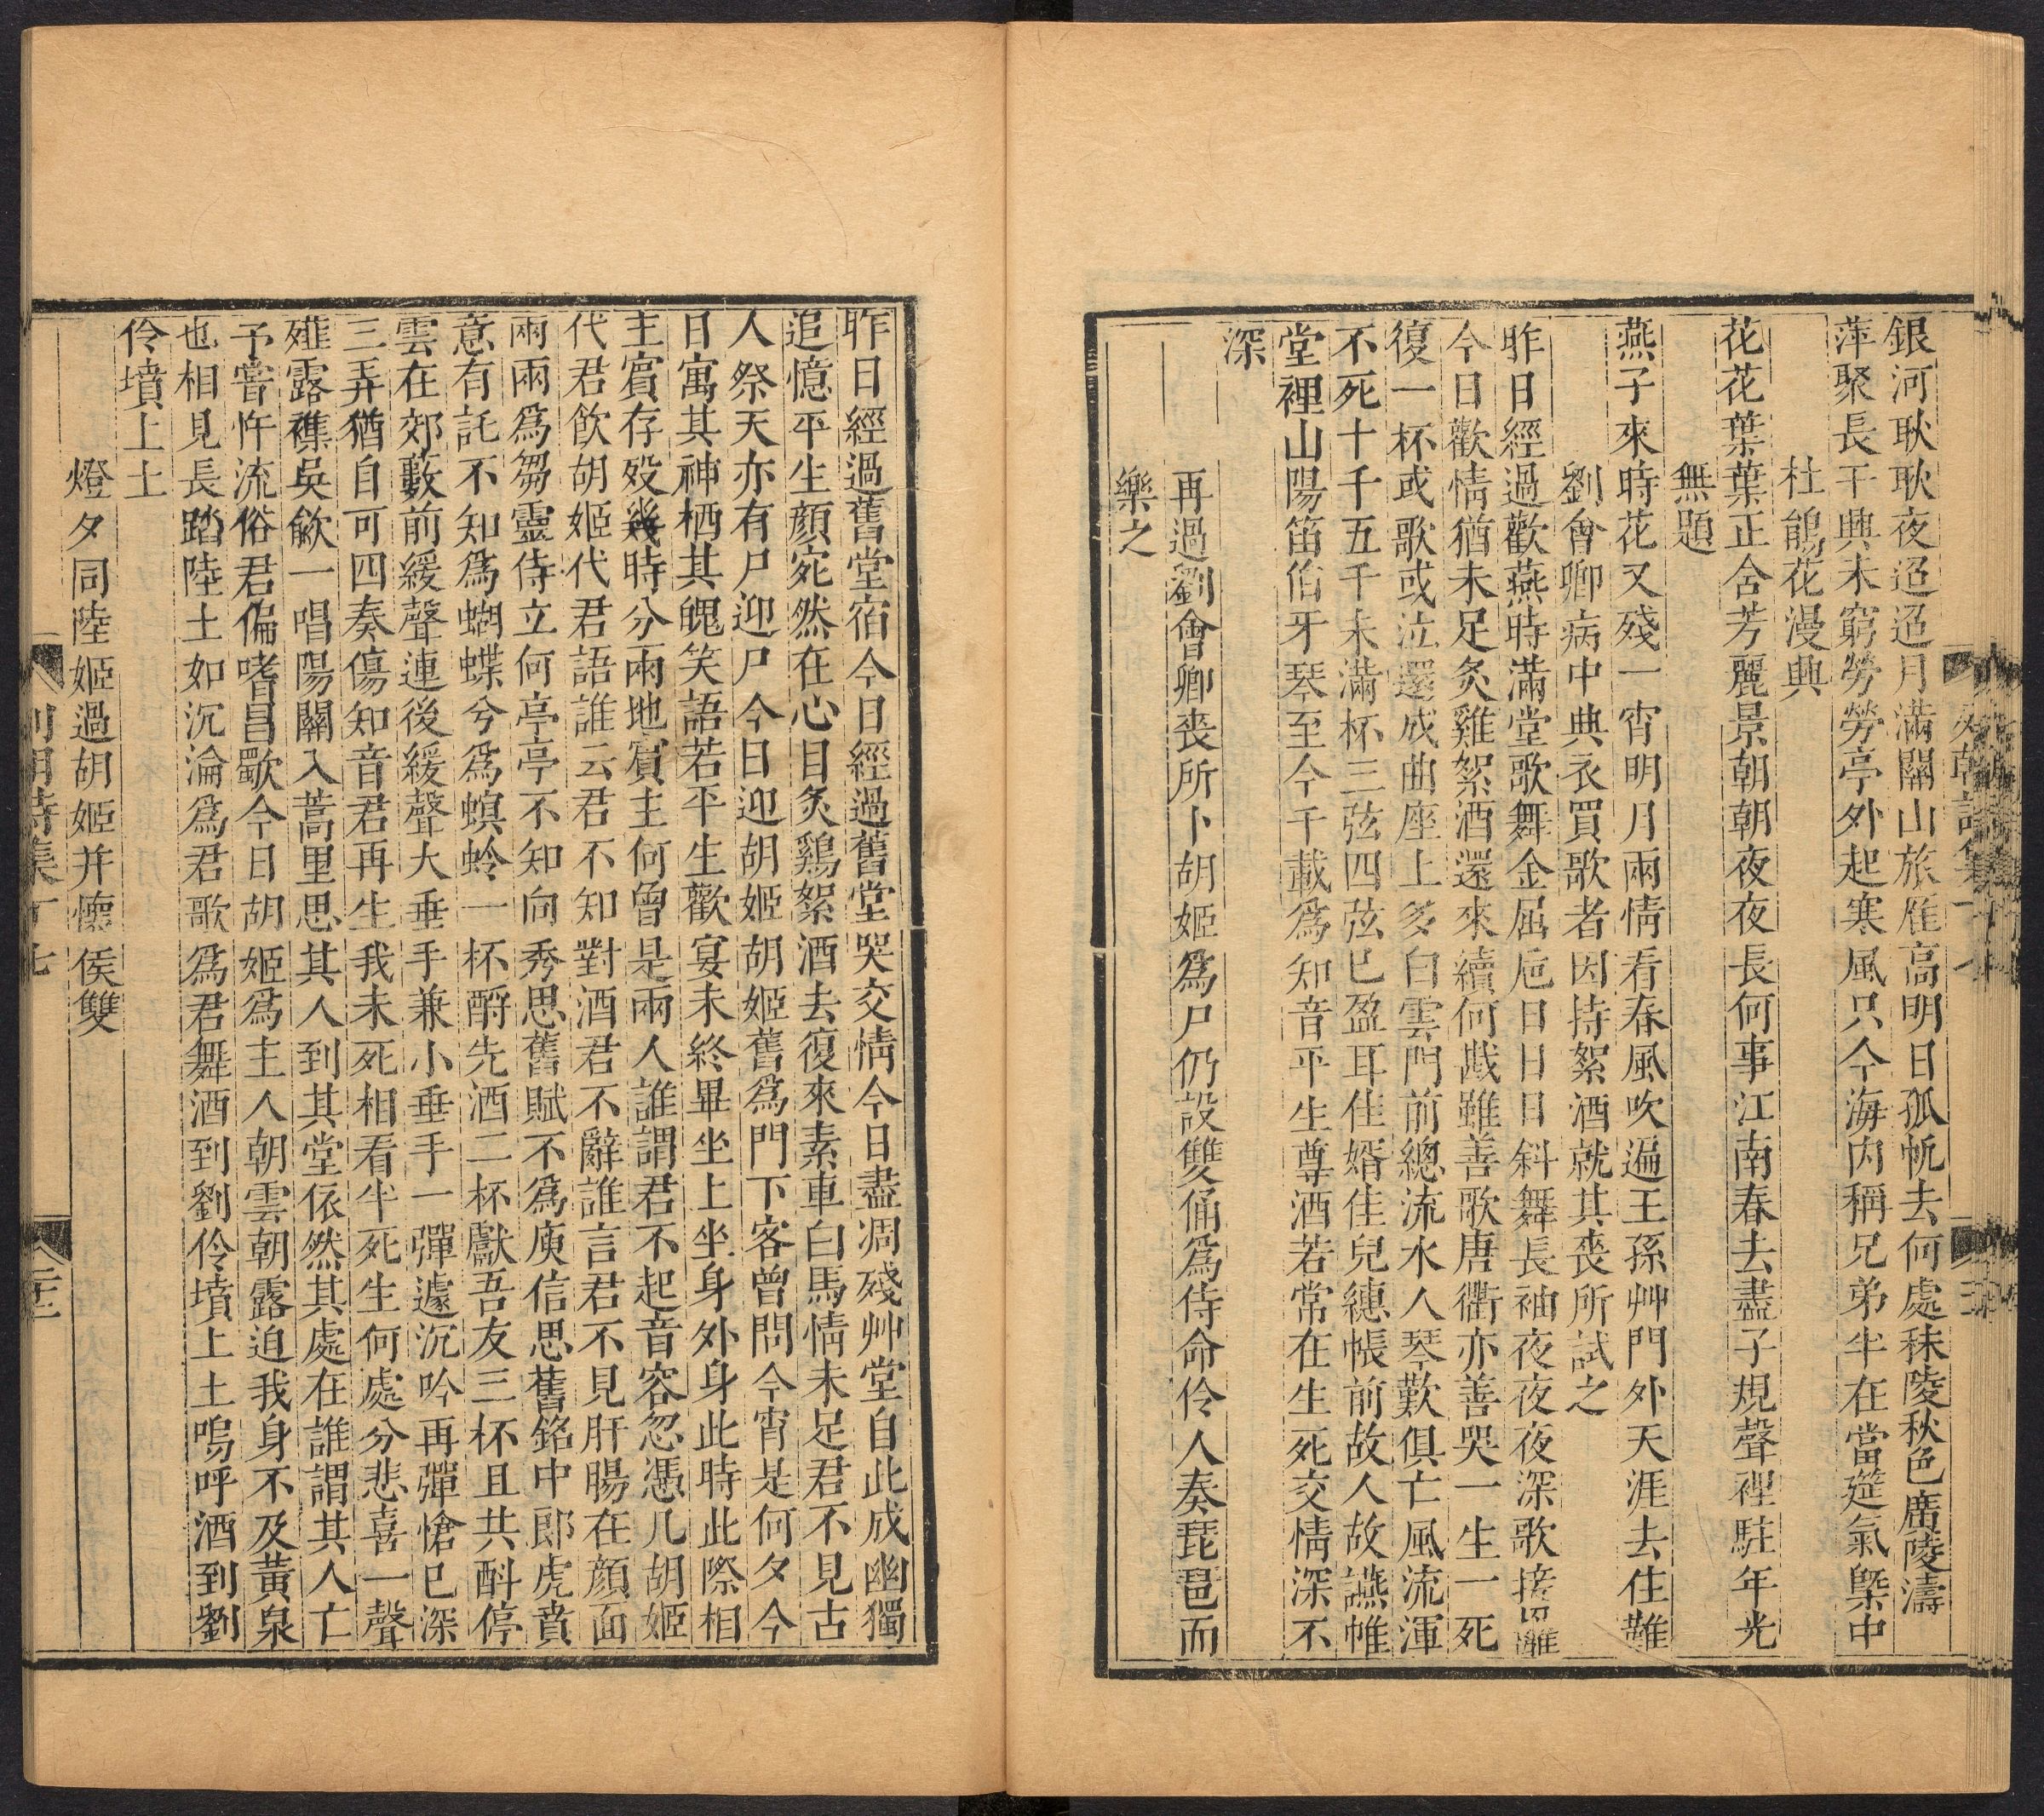 銀河耿耿夜迢迢月滿關山旅雁高明日孤帆去何處秣陵秋色廣陵濤
萍聚長干興未窮勞勞亭外起寒風只今海內稱兄弟半在當筵氣槩中
杜鵑花漫興
花花葉葉正含芳麗景朝朝夜夜長何事江南春去盡子規聲裡駐年光
無題
燕子來時花又殘一宵明月兩情看春風吹遍王孫艸門外天涯去住難
劉會卿病中典衣買歌者因持絮酒就其喪所試之
昨日經過歡燕時滿堂歌舞金屈巵日日日斜舞長袖夜夜夜深歌接䍦
今日歡情猶未足炙雞絮酒還來續何戡雖善歌唐衢亦善哭一生一死
復一杯或歌或泣還成曲座上多白雲門前總流水人琴歎俱亡風流渾
不死十千五千未滿杯三弦四弦已盈耳佳婿佳兒繐帳前故人故讌帷
堂裡山陽笛伯牙琴至今千載爲知音平生尊酒若常在生死交情深不
深
再過劉會卿喪所卜胡姬爲尸仍設雙俑爲侍命伶人奏琵琶而
樂之
昨日經過舊堂宿今日經過舊堂哭交情今日盡凋殘艸堂自此成幽獨
追憶平生顏宛然在心目炙鷄絮酒去復來素車白馬情未足君不見古
人祭天亦有尸迎尸今日迎胡姬胡姬舊爲門下客曾問今宵是何夕今
日寓其神栖其魄笑語若平生歡宴未終畢坐上坐身外身此時此際相
主賓存歿幾時分兩地賓主何曾是兩人誰謂君不起音容忽憑几胡姬
代君飲胡姬代君語誰云君不知對酒君不辭誰言君不見肝腸在顏面
兩兩爲芻靈侍立何亭亭不知向秀思舊賦不爲庾信思舊銘中郎虎賁
意有託不知爲蝴蝶兮爲螟蛉一杯酹先酒二杯獻吾友三杯且共酙停
雲在郊藪前緩聲連後緩聲大垂手兼小垂手一彈遽沉吟再彈愴已深
三弄猶自可四奏傷知音君再生我未死相看半死生何處分悲喜一聲
薤露襍吳歈一唱陽關入蒿里思其人到其堂依然其處在誰謂其人亡
予嘗忤流俗君偏嗜昌歜今日胡姬爲主人朝雲朝露迫我身不及黃泉
也相見長踏陸土如沉淪爲君歌爲君舞酒到劉伶墳上土嗚呼酒到劉
伶墳上土
燈夕同陸姬過胡姬并懷侯雙
列朝詩集丁七